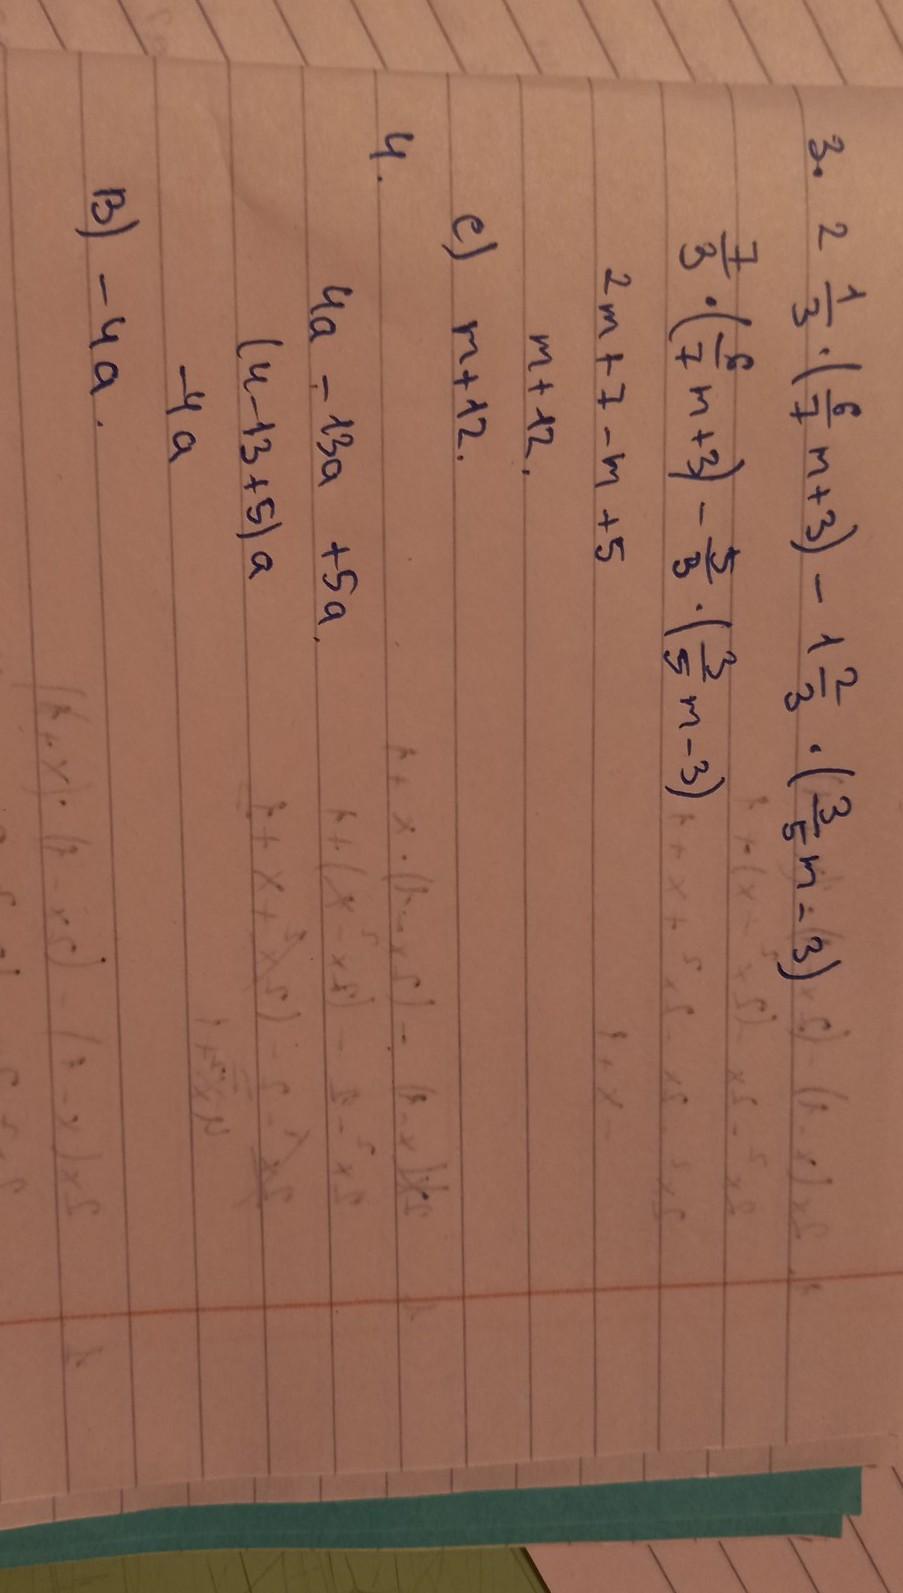 3. 2 1/3 · (6/7 m + 3) - 1 2/3 · (3/5 m - 3)
7/3 · (6/7 m + 3) - 5/3 · (3/5 m - 3)
2m + 7 - m + 5
m + 12.
c) m + 12.
4.
4a - 13a + 5a.
(4 - 13 + 5) a
-4a
B) -4a.